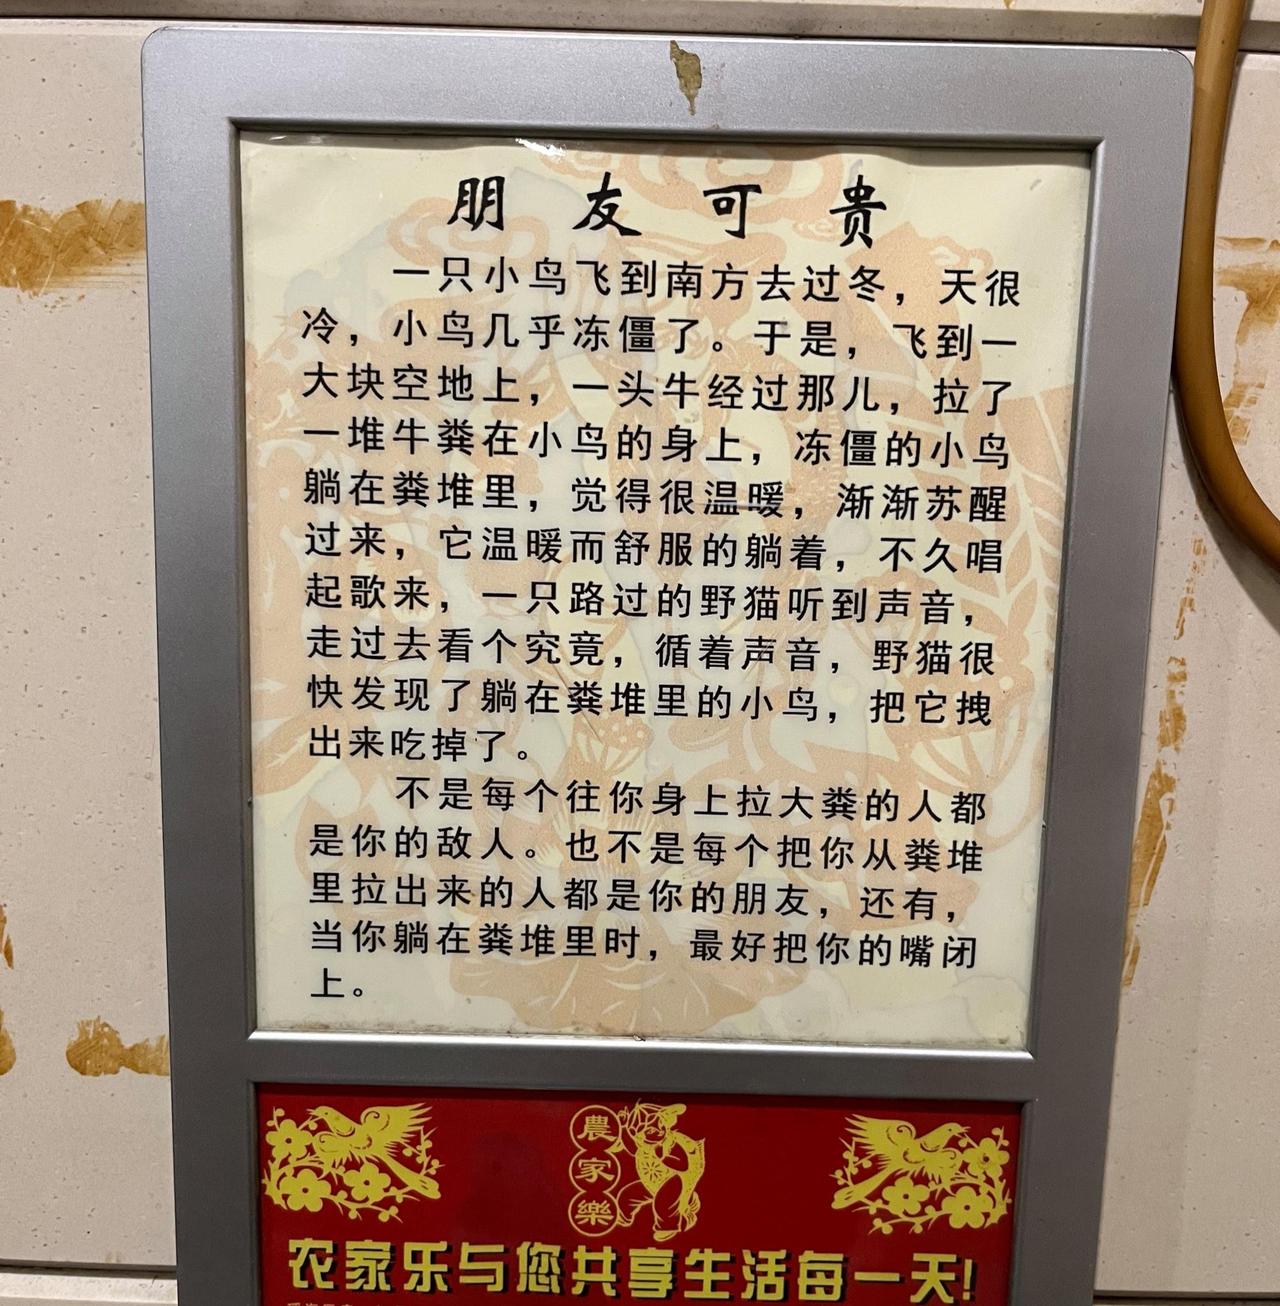 朋友可贵
一只小鸟飞到南方去过冬，天很
冷，小鸟几乎冻僵了。于是，飞到一
大块空地上，一头牛经过那儿，拉了
一堆牛粪在小鸟的身上，冻僵的小鸟
躺在粪堆里，觉得很温暖，渐渐苏醒
过来，它温暖而舒服的躺着，不久唱
起歌来，一只路过的野猫听到声音，
走过去看个究竟，循着声音，野猫很
快发现了躺在粪堆里的小鸟，把它拽
出来吃掉了。
不是每个往你身上拉大粪的人都
是你的敌人。也不是每个把你从粪堆
里拉出来的人都是你的朋友，还有，
当你躺在粪堆里时，最好把你的嘴闭
上。
農家樂
农家乐与您共享生活每一天!